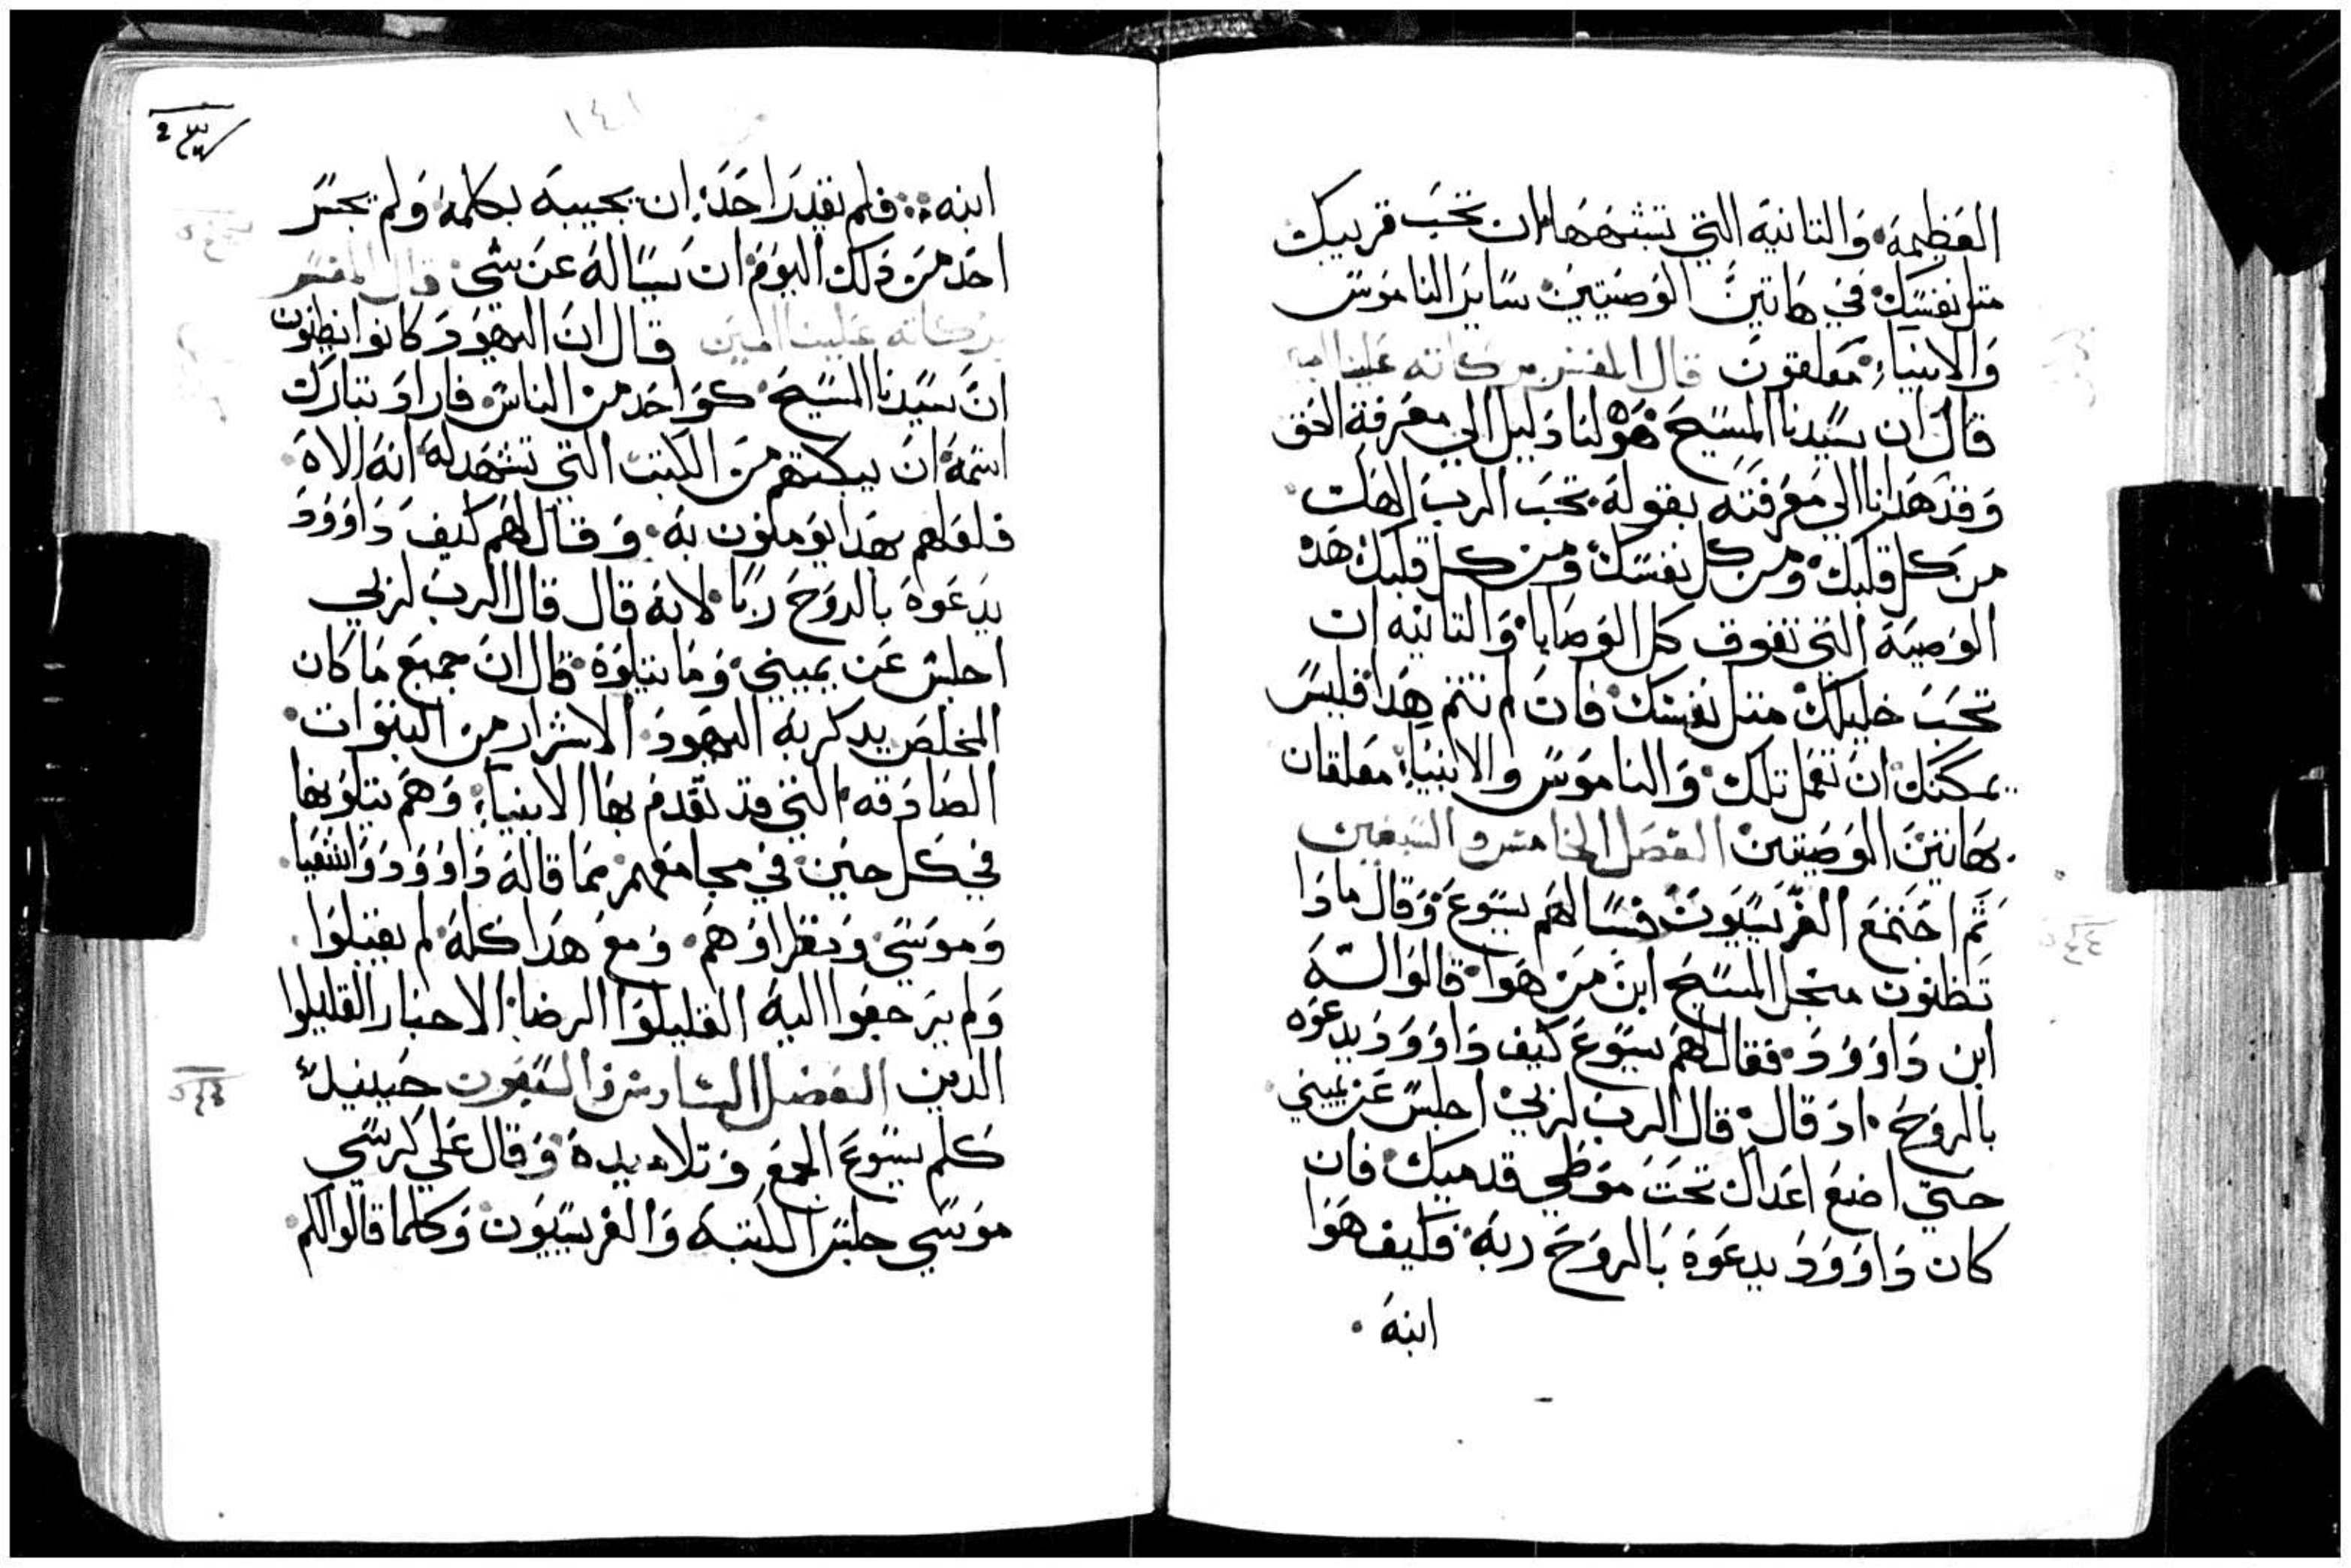 العظيمة والتانية التي تشبهها ان تحب قريبك
متل نفسك في هاتين الوصيتين ساير الناموس
والانبياء معلقون قال المفسر بركاته علينا امين
قال ان سيدنا المسيح هو لنا دليل الي معرفة الحق
وقد هدانا الي معرفته بقوله تحب الرب الهك
من كل قلبك ومن كل نفسك ومن كل قلبك هده
الوصية التي تفوق كل الوصايا والتانيه ان
تحب خليلك متل نفسك فان لم تتم هدا فليس
يمكنك ان تعمل تلك والناموس والانبياء معلقان
بهاتين الوصيتين الفصل الخامس والسبعين
تم اجتمع الفريسيون فسالهم يسوع وقال مادا
تظنون من جل المسيح ابن من هوا قالوا له
ابن داوود فقال لهم يسوع كيف داوود يدعوه
بالروح اد قال قال الرب لربي اجلس عن يميني
حتي اضع اعداك تحت موطي قدميك فان
كان داوود يدعوه بالروح ربه فكيف هوا
ابنه
١٤١
ابنه فلم يقدر احد ان يجيبه بكلمة ولم يجسر
احد من دلك اليوم ان يساله عن شي قال المفسر
بركاته علينا امين قال ان اليهود كانوا يظنون
ان سيدنا المسيح كواحد من الناس فاراد تبارك
اسمه ان يبكتهم من الكتب التي تشهد له انه الاه
فلعلهم بهدا يومنون به وقال لهم كيف داوود
يدعوه بالروح ربا لانه قال قال الرب لربي
اجلس عن يميني وما يتلوه قال ان جميع ما كان
المخلص يدكر به اليهود الاشرار من النبوات
الصادقه التي قد تقدم بها الانبياء وهم يتلونها
في كل حين في مجامعهم مما قاله داوود واشعيا
وموسي ونظراوهم ومع هدا كله لم يقبلوا
ولم يرجعوا اليه القليلوا الرضا الاحبار القليلوا
الدين الفصل السادس والسبعون حينيد
كلم يسوع الجمع وتلاميده وقال علي كرسي
موسي جلس الكتبه والفريسيون وكلما قالوا لكم